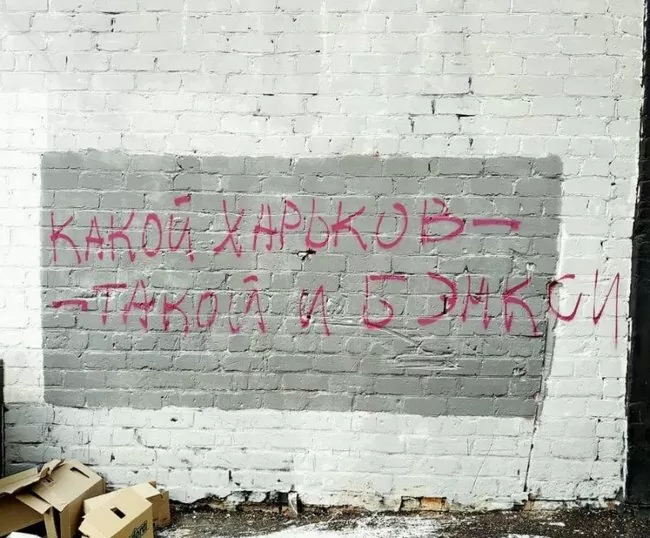 КАКОЙ ХАРЬКОВ —
— ТАКОЙ И БЭНКСИ